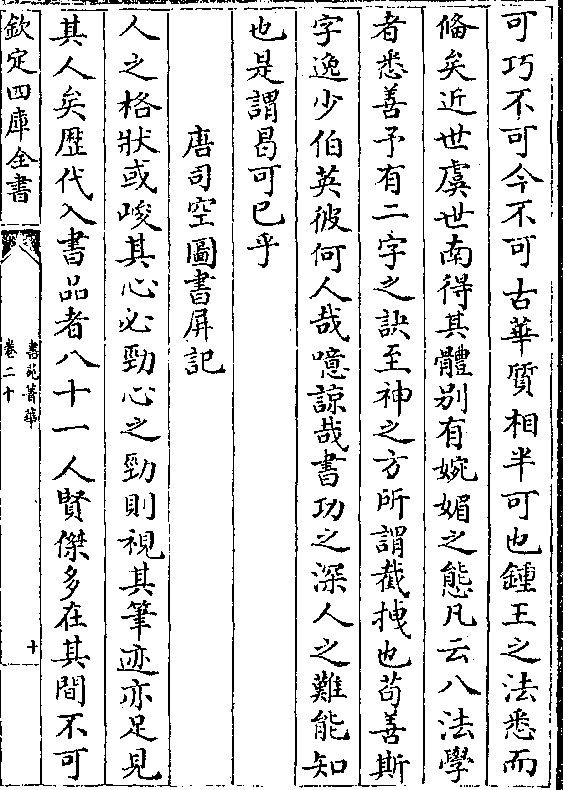 可巧不可今不可古華質相半可也鍾王之法悉而
俻矣近世虞世南得其體别有婉媚之態凡云八法學
者悉善予有二字之訣至神之方所謂截拽也苟善斯
字逸少伯英彼何人哉噫諒哉書功之深人之難能知
也是謂曷可已乎
唐司空圖書屏記
人之格狀或峻其心必勁心之勁則視其筆迹亦足見
其人矣歷代入書品者八十一人賢傑多在其間不可
欽定四庫全書
書苑菁華
卷二十
十